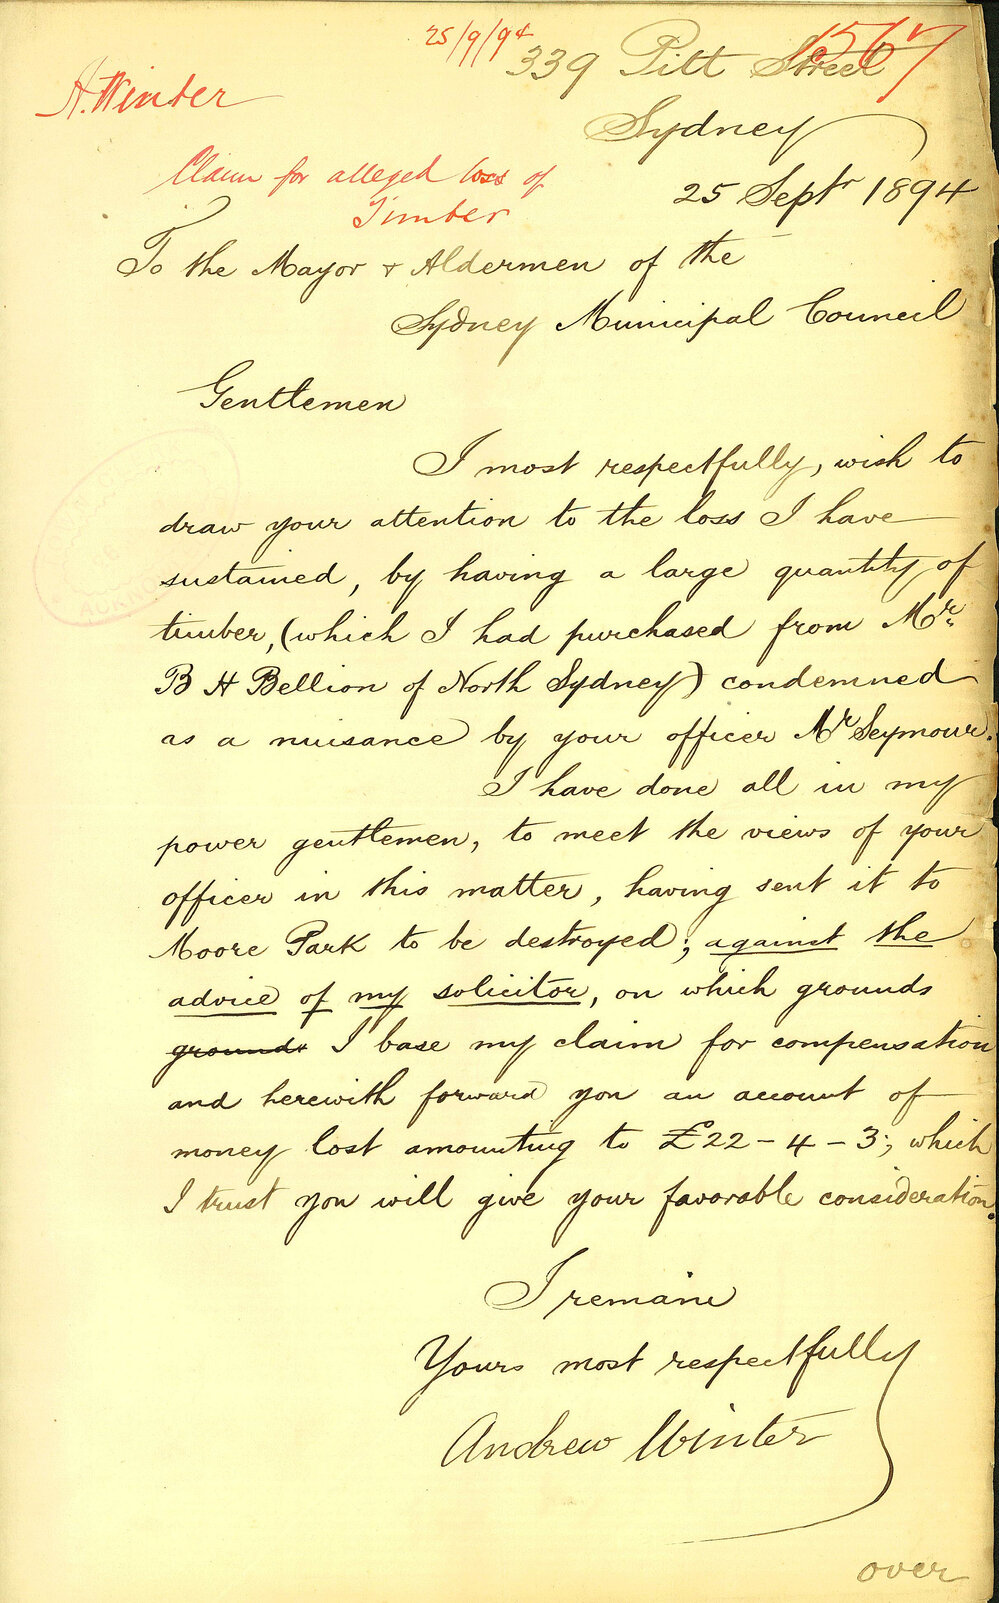 25/9/94
1567
339 Pitt Street
A. Winter
Sydney
Claim for alleged loss of
Timber
25 Septr 1894
To the Mayor & Aldermen of the
Sydney Municipal Council
Gentlemen
I most respectfully, wish to
draw your attention to the loss I have
sustained, by having a large quantity of
timber, (which I had purchased from Mr
B H Bellion of North Sydney) condemned
as a nuisance by your officer Mr Seymour.
I have done all in my
power gentlemen, to meet the views of your
officer in this matter, having sent it to
Moore Park to be destroyed; against the
advice of my solicitor, on which grounds
grounds I base my claim for compensation
and herewith forward you an account of
money lost amounting to £22-4-3; which
I trust you will give your favorable consideration.
I remain
Yours most respectfully
Andrew Winter
over